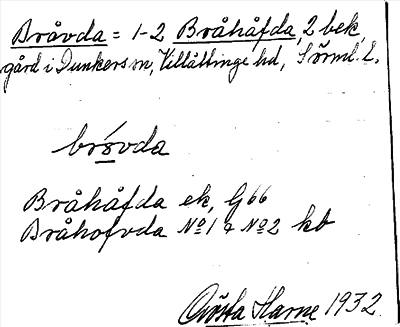 Bråvda = 1-2 Bråhåfda, 2 bek,
gård i Dunkers sn, Villåttinge hd, Sörml. l.
bròvda
Bråhåfda ek, G66
Bråhofvda No 1 & No 2 kb
Gösta Harne 1932.